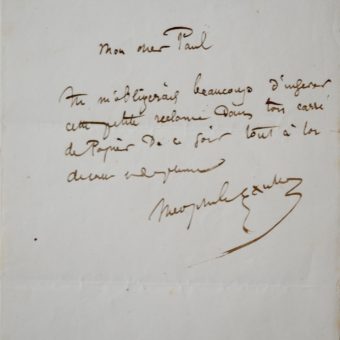 Mon cher Paul
Tu m'obligerais beaucoup d'inserer
cette petite reclame dans ton carré
de Papier de ce soir tout à toi
de cœur
Theophile Gautier